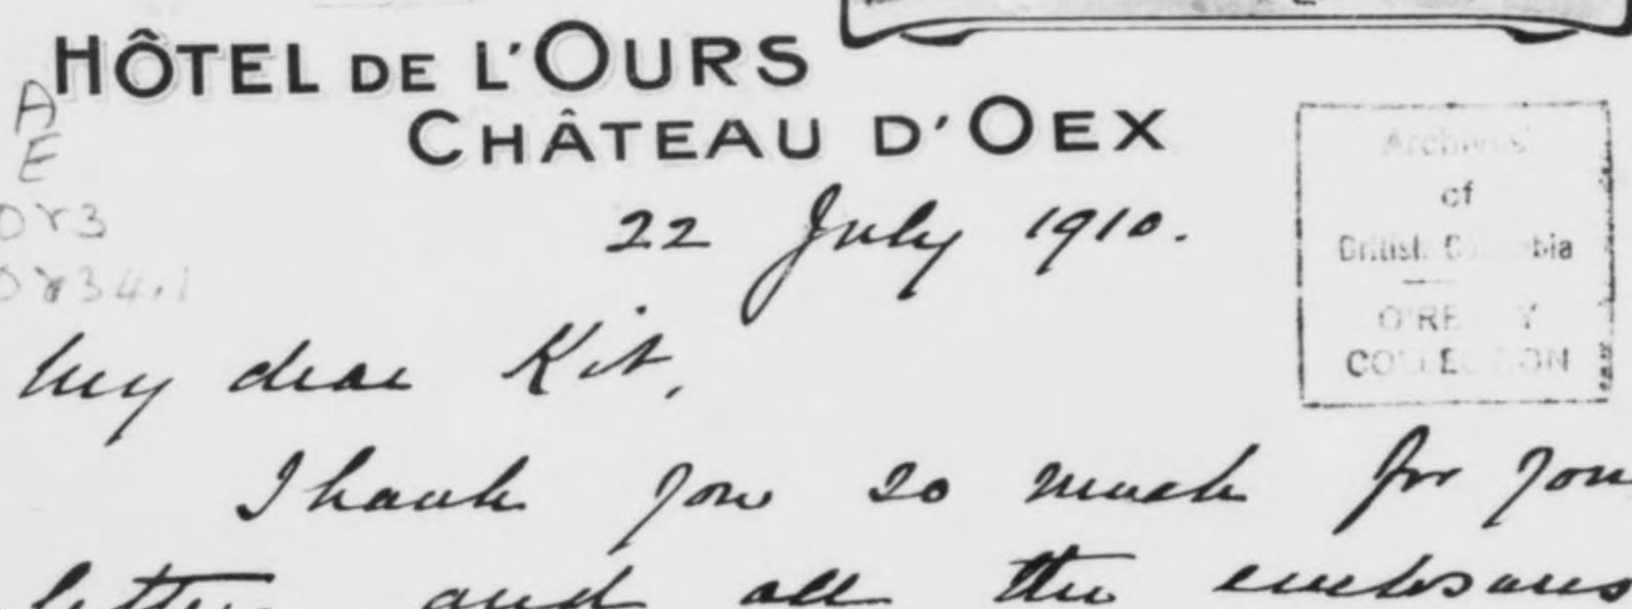 HÔTEL DE L'OURS
CHÂTEAU D'OEX
A
E
OR3
OR34.1
Archives
of
British Columbia
O'REILLY
COLLECTION
22 July 1910.
My dear Kit,
Thank you so much for your
letter and all the enclosures